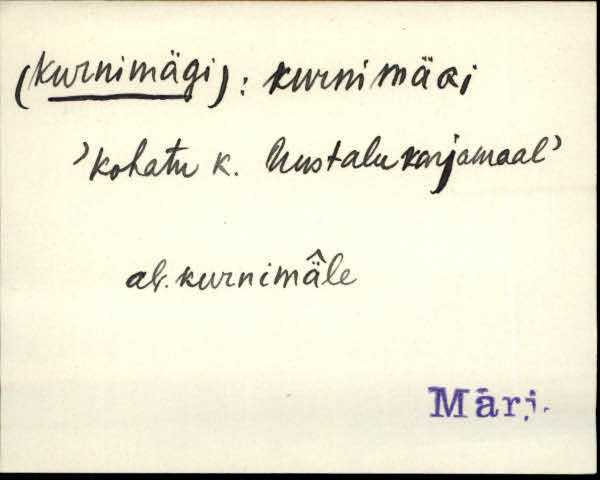 (kurnimägi): kurnimäGi
'kohatu k. Uustalu karjamaal'
al. kurnimä̂le
Märj.